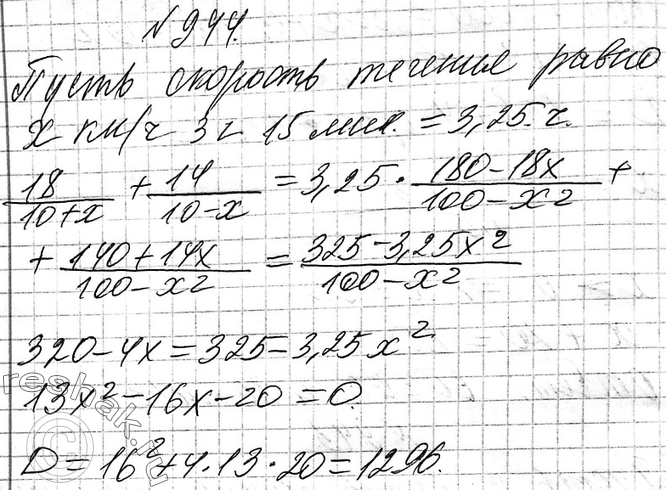 № 944.
Пусть скорость течения равна
x км/ч 3 ч 15 мин. = 3,25 ч.
18/(10+x) + 14/(10-x) = 3,25 · (180-18x)/(100-x²) +
+ (140+14x)/(100-x²) = (325-3,25x²)/(100-x²)
320-4x=325-3,25x²
13x²-16x-20=0.
D=16²+4·13·20=1296.
reshak.ru